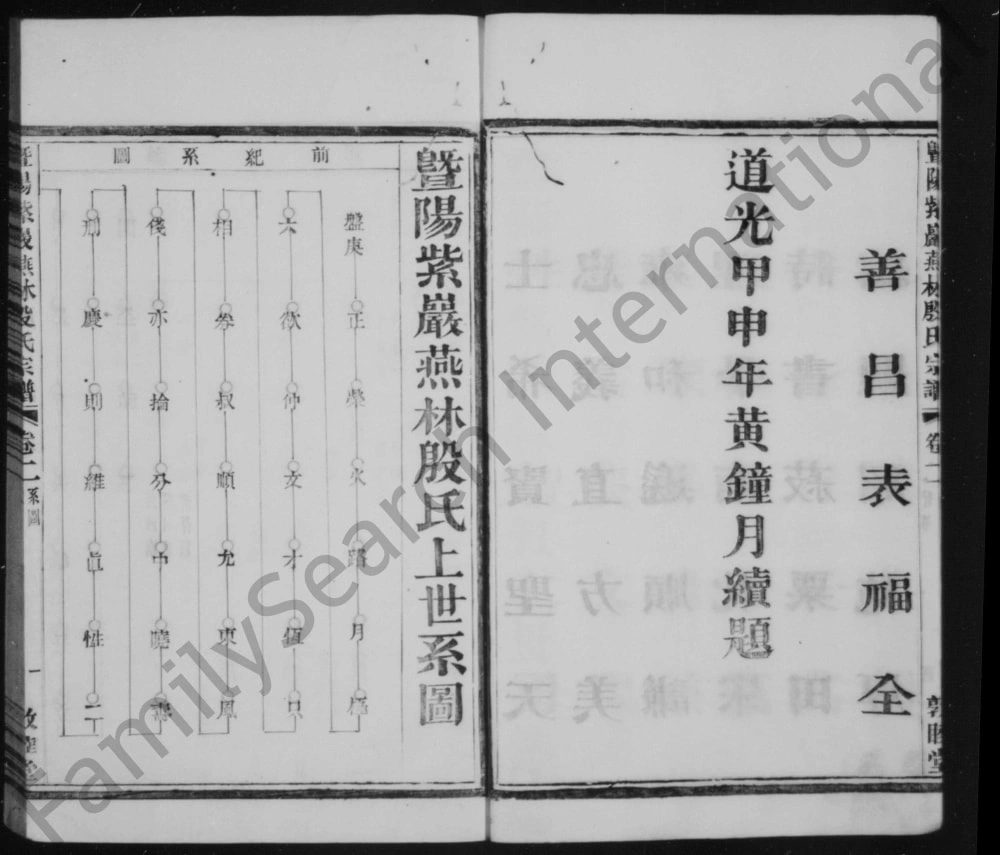 善昌表福全
道光甲申年黃鐘月續題
暨陽紫巖燕林殷氏宗譜 卷二 敦睦堂
暨陽紫巖燕林殷氏上世系圖
前紀系圖
盤庚 正 榮 火 路 月
六 欽 仲 文 才
相 叔 順 允 東 鳳
亦 中
刑 慶 則 維 眞 性
暨陽紫巖燕林殷氏宗譜 卷二 系圖 一 敦睦堂
FamilySearch International